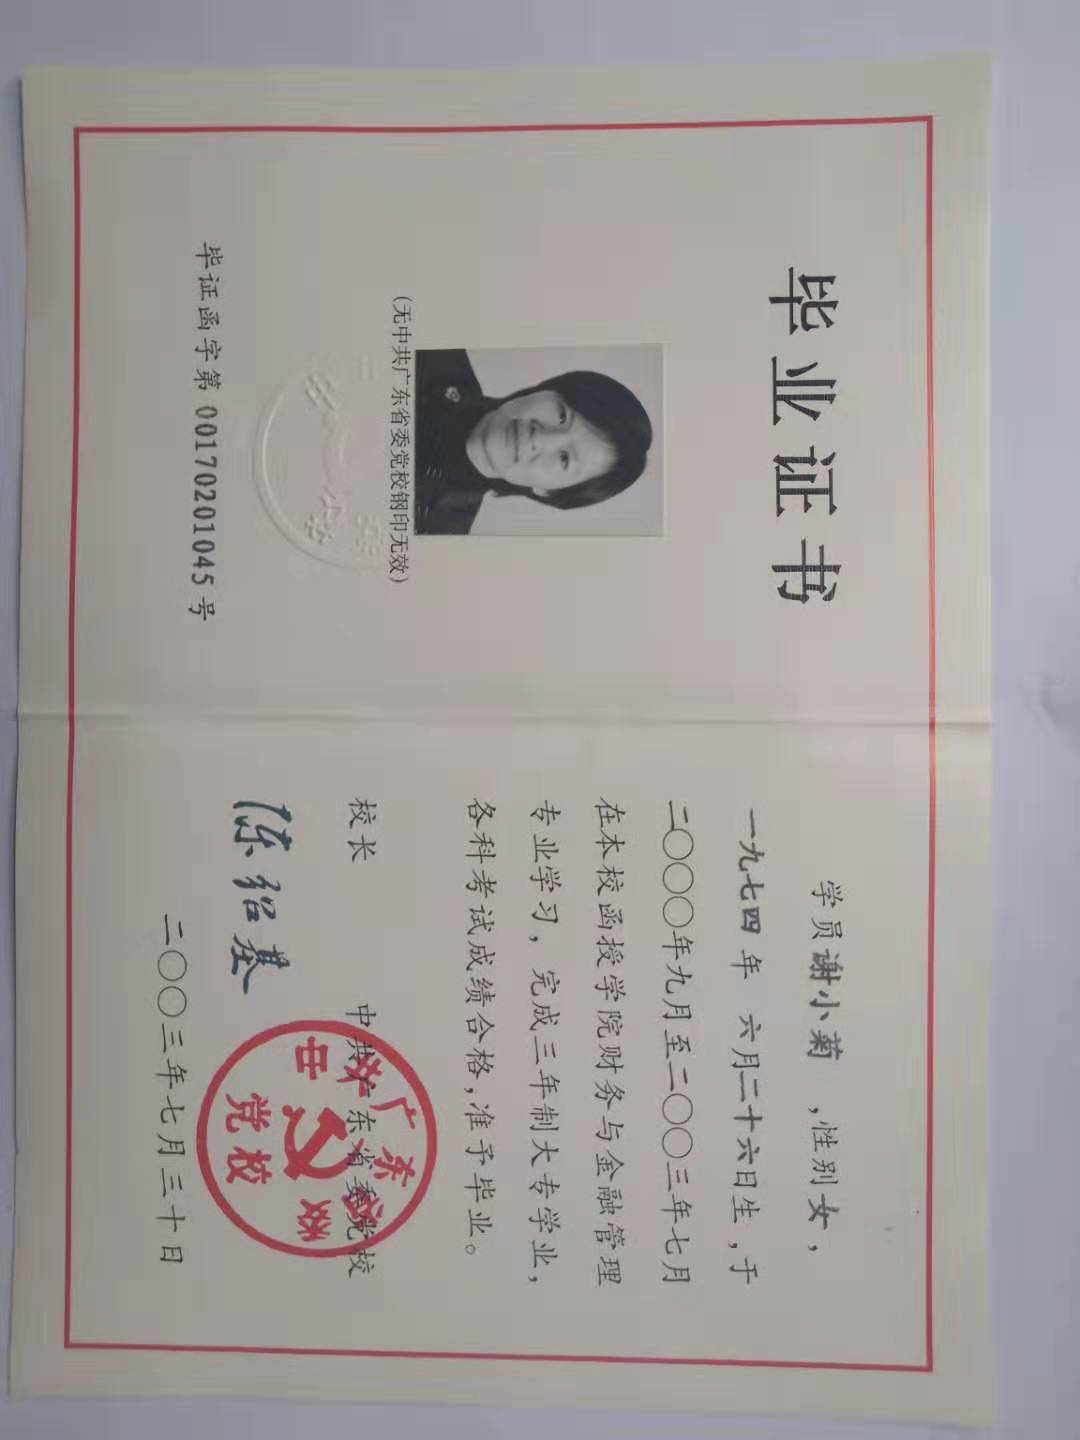 毕业证书
(无中共广东省委党校钢印无效)
毕证函字第 00170201045 号
学员谢小菊 ,性别女,
一九七四 年 六月二十六日生,于
二〇〇〇年九月至二〇〇三年七月
在本校函授学院财务与金融管理
专业学习,完成三年制大专学业,
各科考试成绩合格,准予毕业。
校长
陈绍基
中共广东省委党校
中共广东省委
党校
二〇〇三年七月三十日